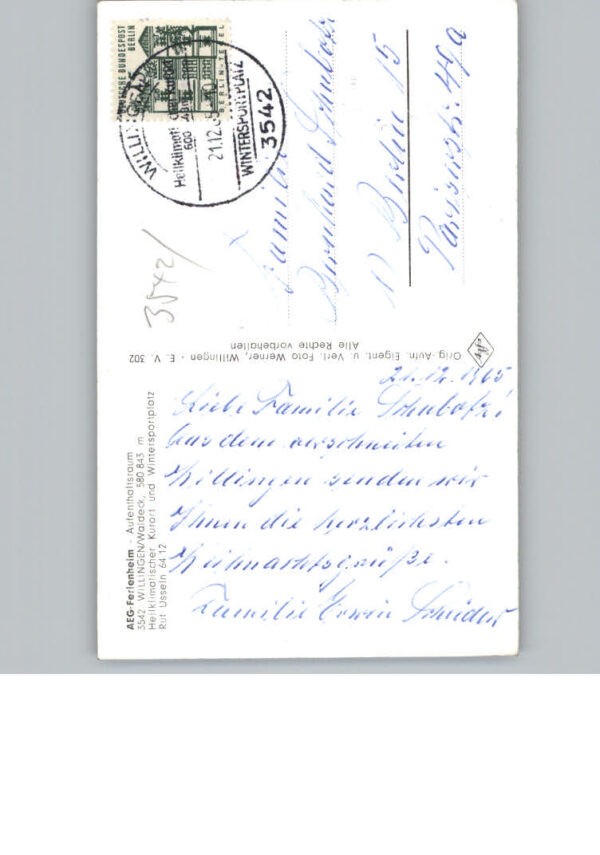 AEG-Ferienheim - Aufenthaltsraum
3542 WILLINGEN/Waldeck, 580-843 m
Heilklimatischer Kurort und Wintersportplatz
Ruf Usseln 6412
21.12.1965
Liebe Familie
Aus dem verschneiten
Willingen senden wir
Ihnen die herzlichsten
Weihnachtsgrüße.
Familie Erwin
Orig.-Aufn. Eigent. u. Verl. Foto Werner, Willingen - E. V. 302
Alle Rechte vorbehalten
DEUTSCHE BUNDESPOST
BERLIN
BERLIN-TEGEL
WILLINGEN
Heilklimatischer Kurort
21.12.65
WINTERSPORTPLATZ
3542
3542/
Familie
Bernhard
1 Berlin 15
Pariserstr. 49a